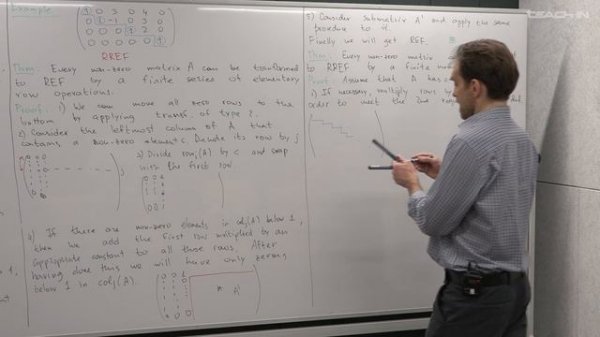 Example.
1 0 3 0 4 0
0 1 -1 0 3 0
0 0 0 1 2 0
0 0 0 0 0 1
RREF
Thm. Every non-zero matrix A can be transformed
to REF by a finite series of elementary
row operations.
Proof. 1) We can move all zero rows to the
bottom by applying transf. of type 2.
2) Consider the leftmost column of A that
contains a non-zero element c. Denote its row by j
3) Divide row (A) by c and swap
with the first row.
4) If there are non-zero elements in colj(A) below 1,
then we add the first row multiplied by an
appropriate constant to all those rows. After
having done this we will have only zeros
below 1 in colj(A).
* A'
5) Consider submatrix A' and apply the same
procedure to it.
Finally we will get REF.
Thm. Every non-zero matrix
to RREF by a finite
Proof. Assume that A has
1) If necessary, multiply rows by
order to meet the 2nd
TEACH-IN